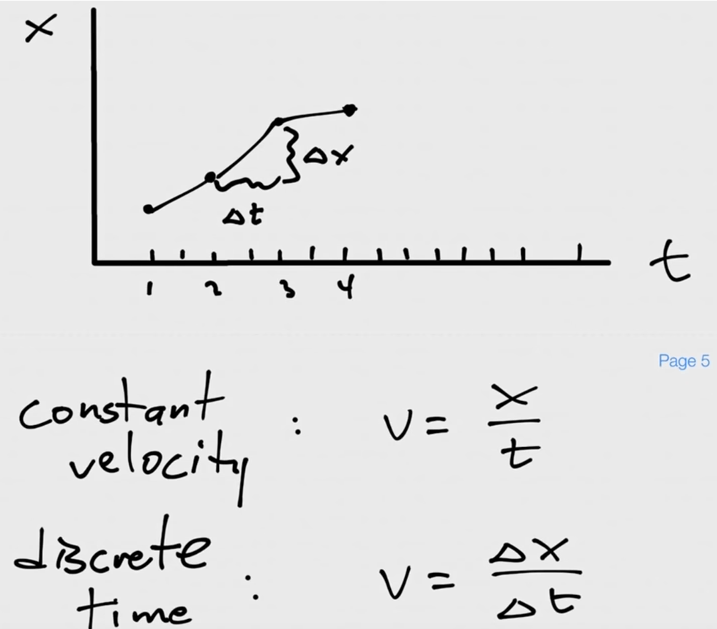 x
Δx
Δt
1 2 3 4
t
Page 5
constant velocity : v = x/t
discrete time : v = Δx/Δt